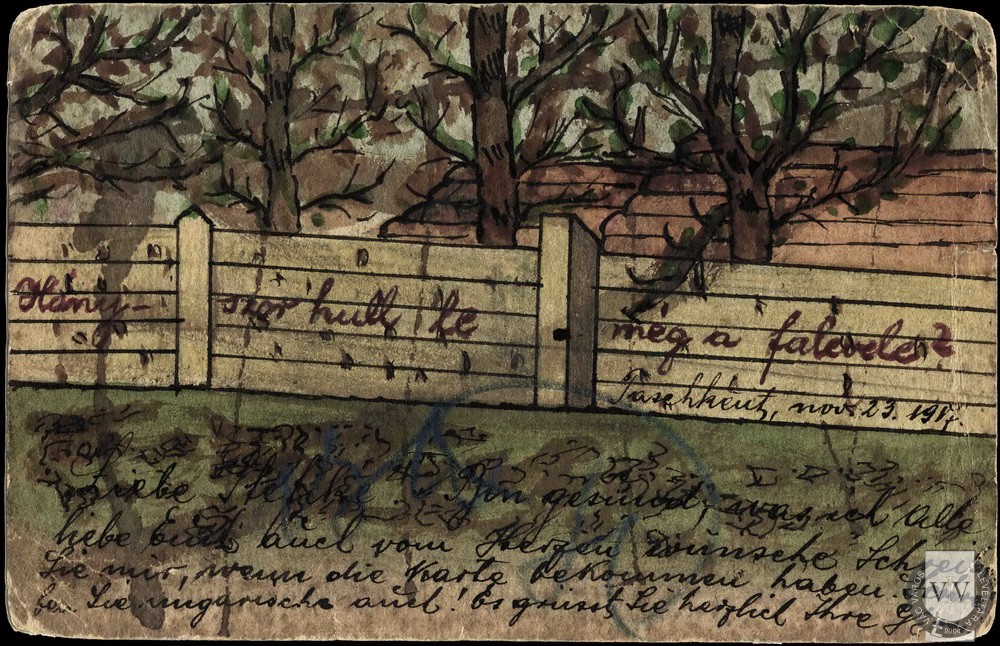 Hány-
szor hull le
még a falevele?
Taschként, nov. 23. 1917.
Liebe Bin gesund, was ich Alle
liebe Euch auch vom Herzen wünsche Schrei
Sie mir, wenn die Karte bekommen haben.
ben Sie ungarische auch! Es grüsst Sie herzlich Ihre
VV